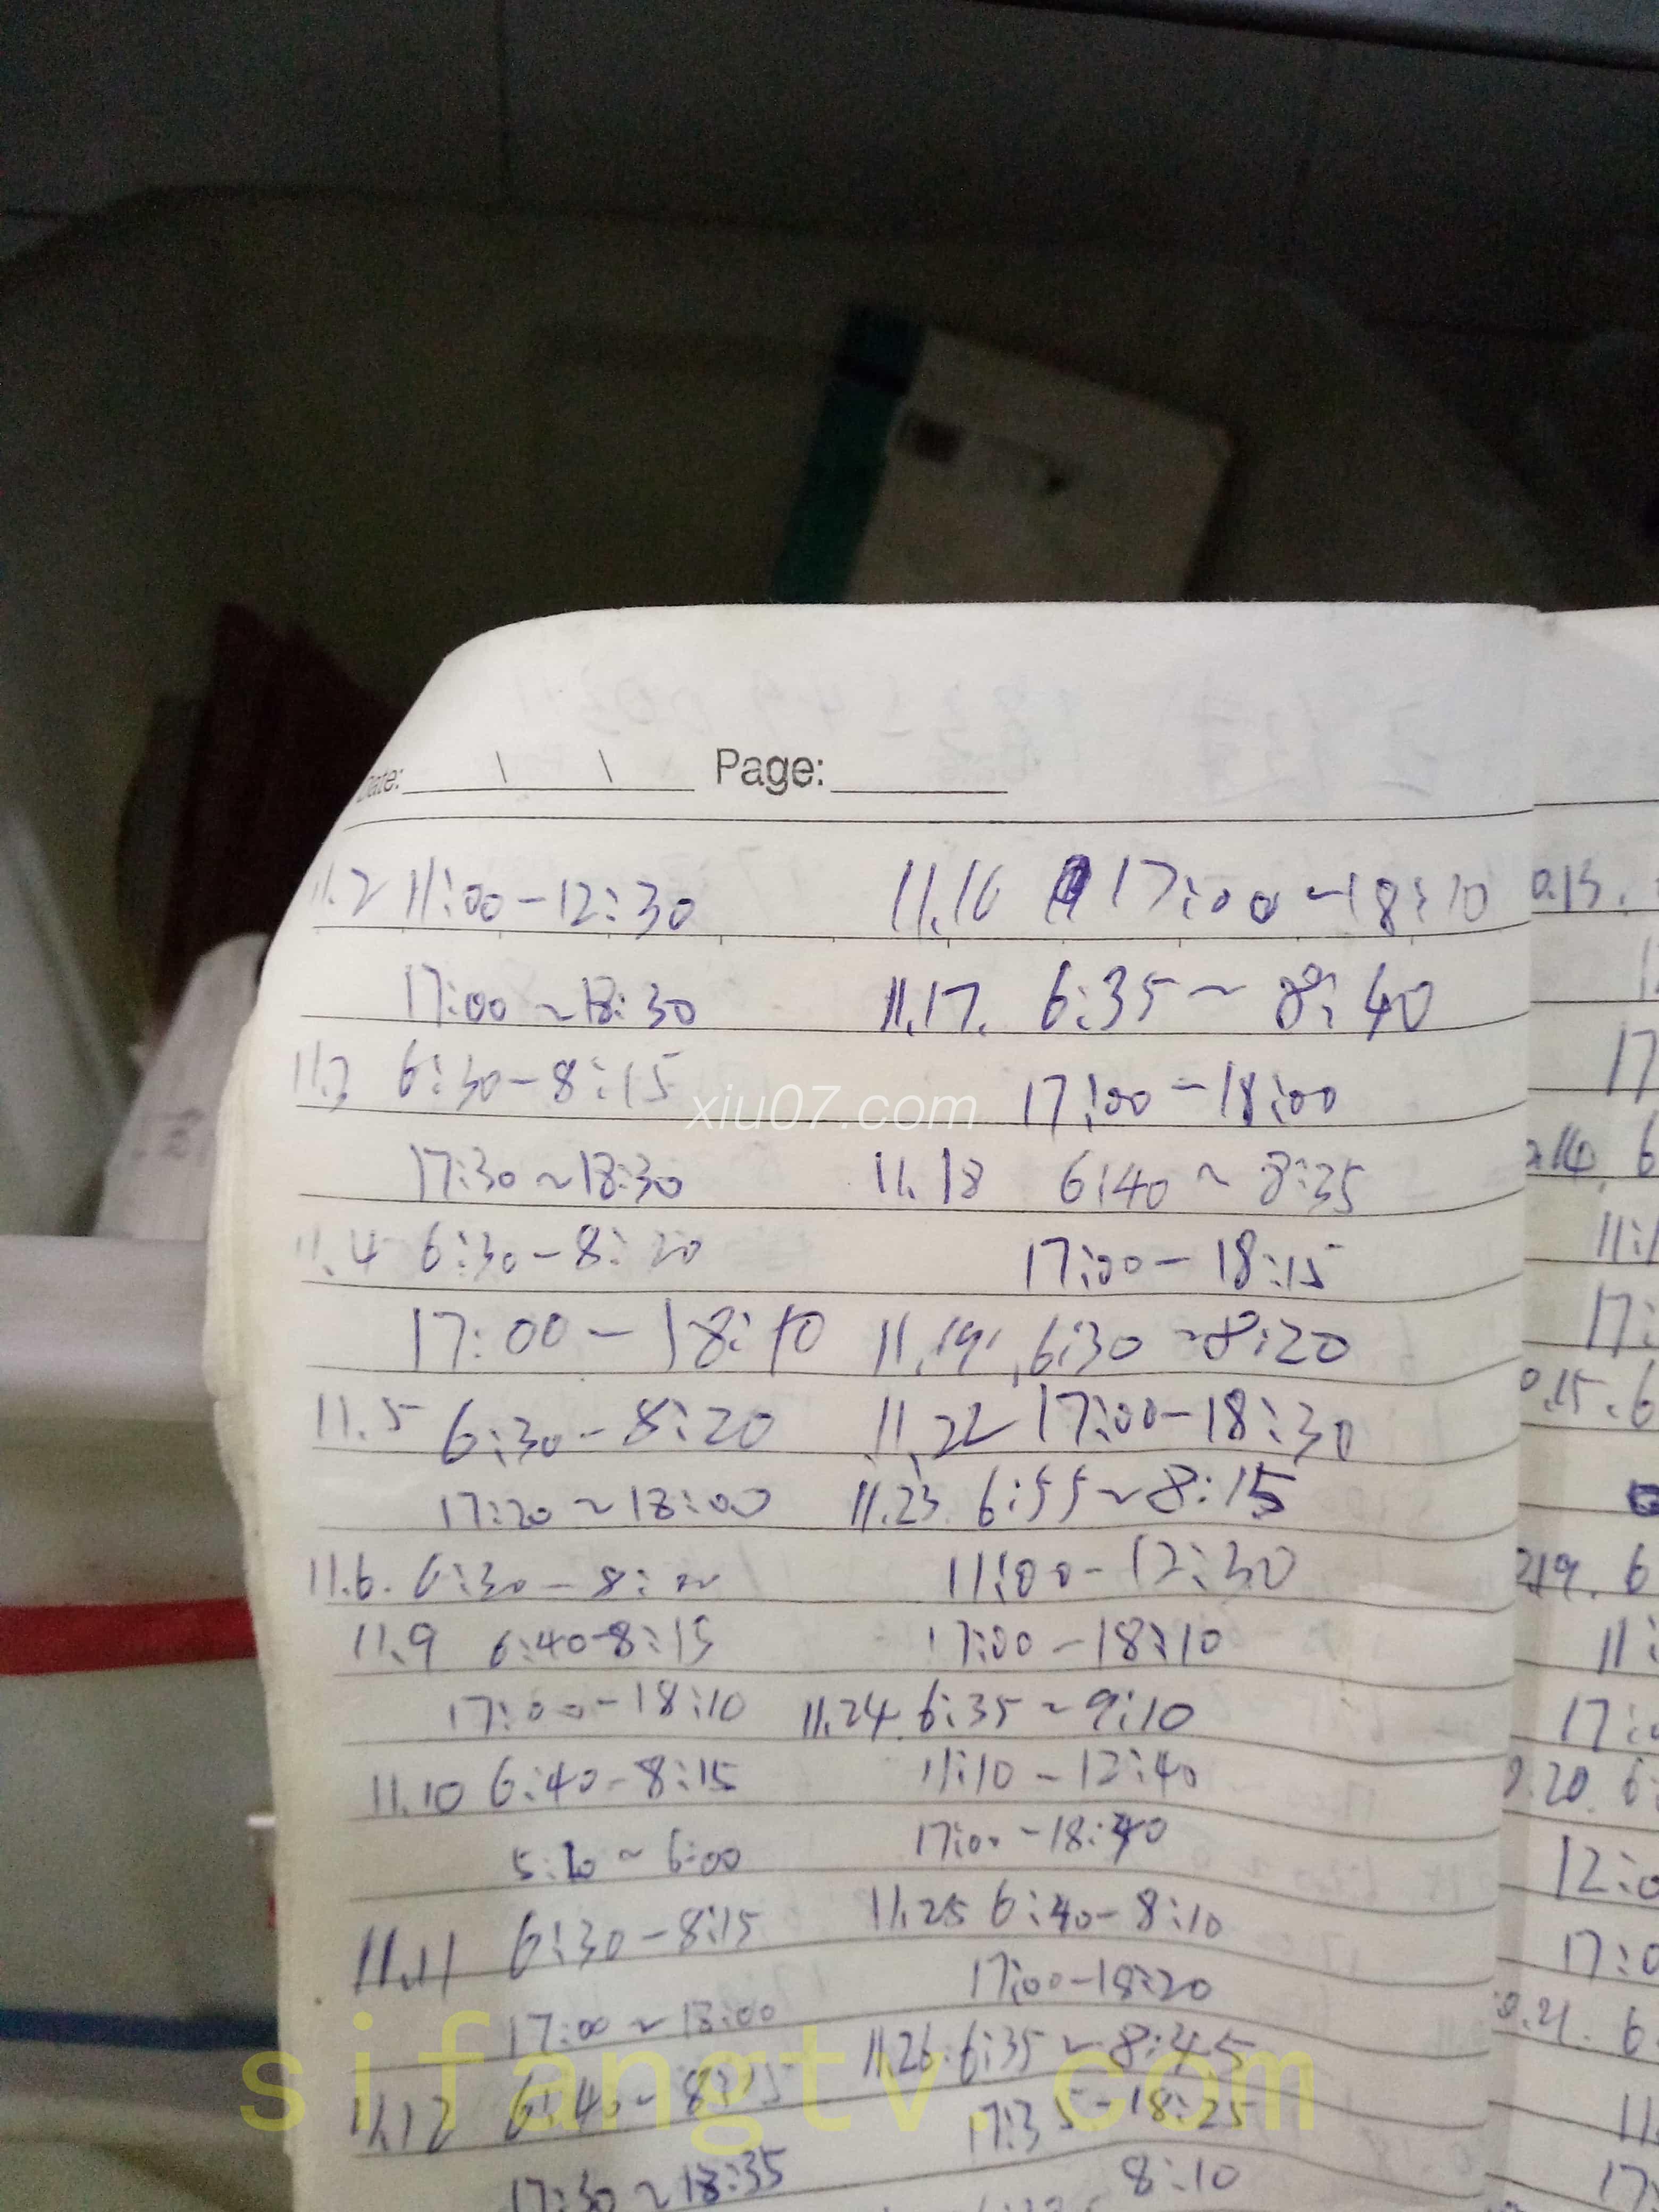 Date: Page:
11.2 11:00-12:30
17:00~18:30
11.3 6:30-8:15
17:30~18:30
11.4 6:30-8:20
17:00-18:10
11.5 6:30-8:20
17:20~18:00
11.6. 6:30-8:
11.9 6:40-8:15
17:00-18:10
11.10 6:40-8:15
~6:00
11.11 6:30-8:15
17:00~18:00
11.12 6:40-8:15
17:30~18:35
11.16 17:00-18:10
11.17. 6:35~8:40
17:00-18:00
11.18 6:40~8:35
17:00-18:15
11.19. 6:30~8:20
11.22 17:00-18:30
11.23 6:55~8:15
11:00-12:30
17:00-18:10
11.24. 6:35~9:10
11:10-12:40
17:00-18:40
11.25 6:40-8:10
17:00-18:20
11.26. 6:35~8:45
17:35-18:25
8:10
0.13.
17
6
11:1
17:
0.15.6
6
11:
17:0
0.20. 6:
12:0
17:0
0.21. 6
11
17:
xiu07.com
sifangtv.com